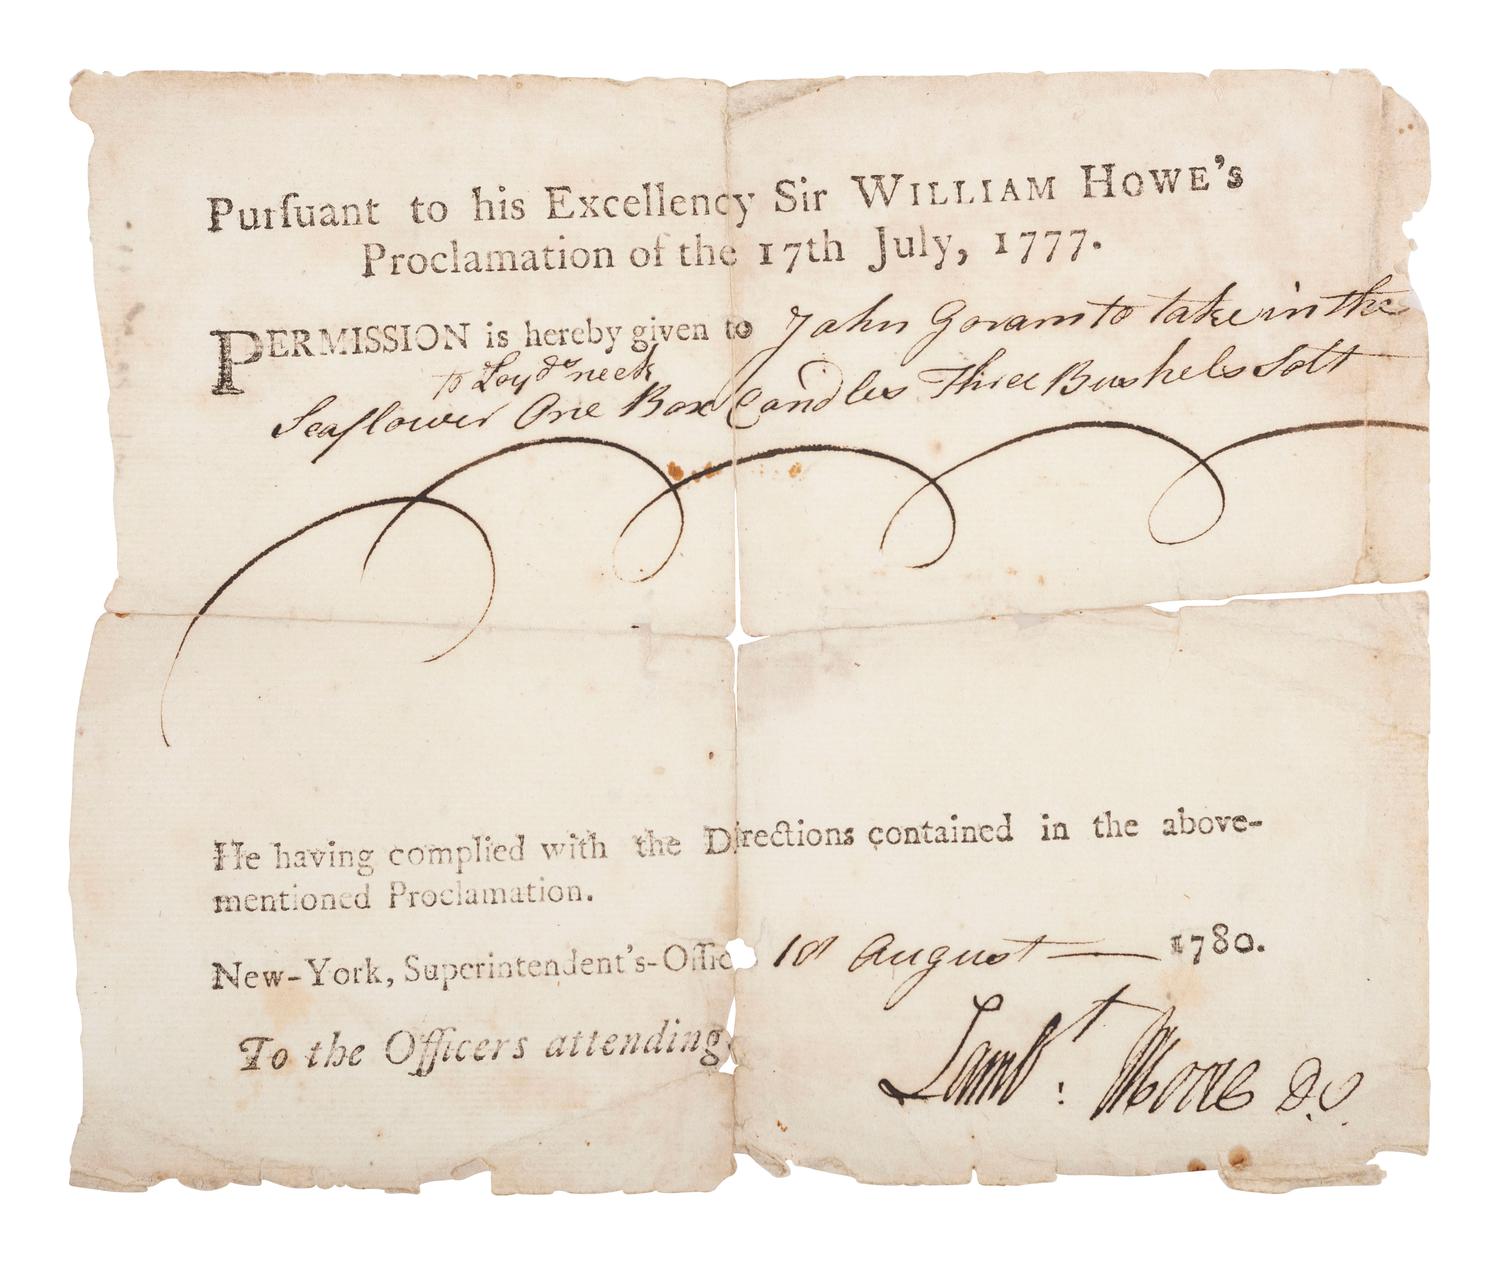 Purſuant to his Excellency Sir WILLIAM HOWE's
Proclamation of the 17th July, 1777.
PERMISSION is hereby given to John Goram to take in the
to Loyds neck
Seaflower One Box Candles Three Bushels Solt
He having complied with the Directions contained in the above-
mentioned Proclamation.
New-York, Superintendent's-Offic 18 August 1780.
To the Officers attending
Lambt: Moore D.S.